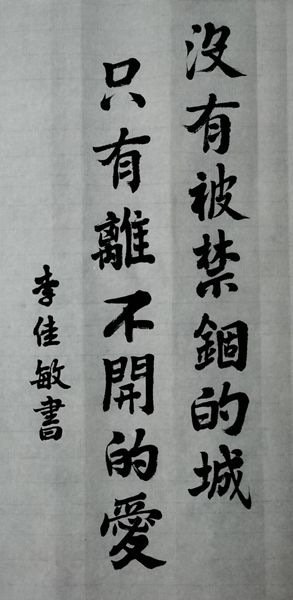 沒有被禁錮的城
只有離不開的愛
李佳敏書